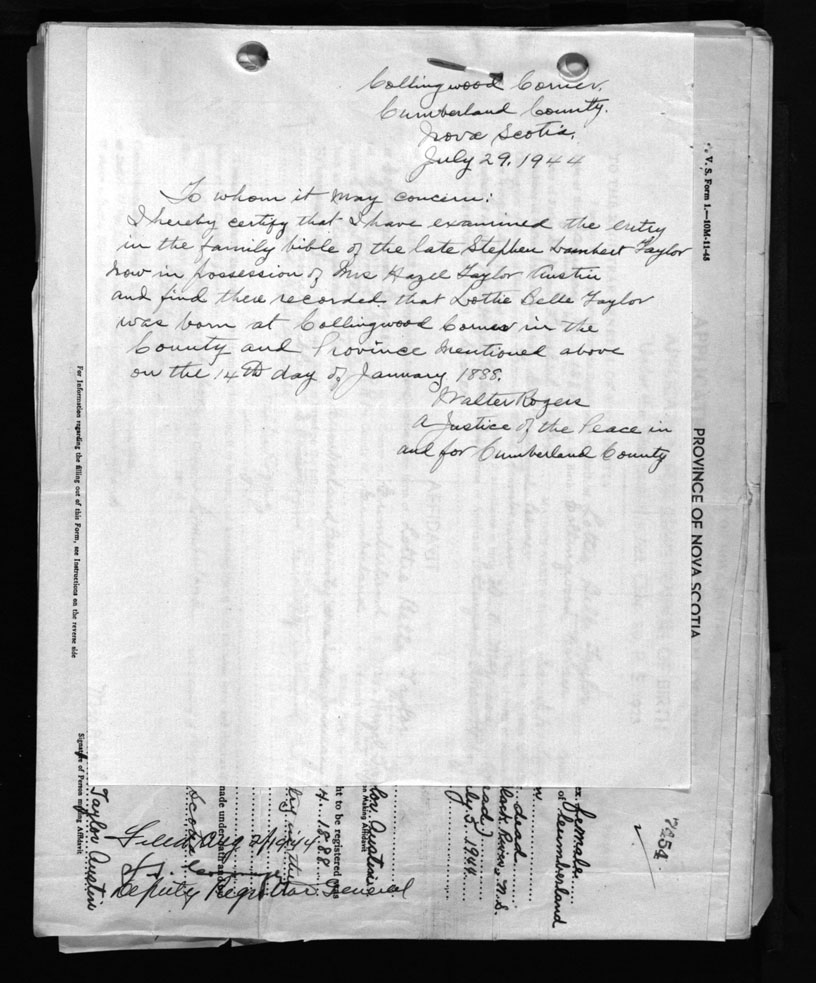 Collingwood Corner.
Cumberland County.
Nova Scotia.
July 29. 1944
To whom it may concern:
I hereby certify that I have examined the entry
in the family bible of the late Stephen Lambert Taylor
now in possession of Mrs Hazel Taylor Austin
and find there recorded that Lottie Belle Taylor
was born at Collingwood Corner in the
County and Province mentioned above
on the 14th day of January 1888.
Walter Rogers
A Justice of the Peace in
and for Cumberland County
V. S. Form 1.—10M-11-43
PROVINCE OF NOVA SCOTIA
For Information regarding the filling out of this Form, see Instructions on the reverse side
Signature of Person making Affidavit
Taylor Austin
Scotia
made under oath and
Filed Aug 2/1944
Deputy Registrar General
ht to be registered was
4. 1888
lor Austin
n Making Affidavit
ly 5. 1944
dead
female
of Cumberland